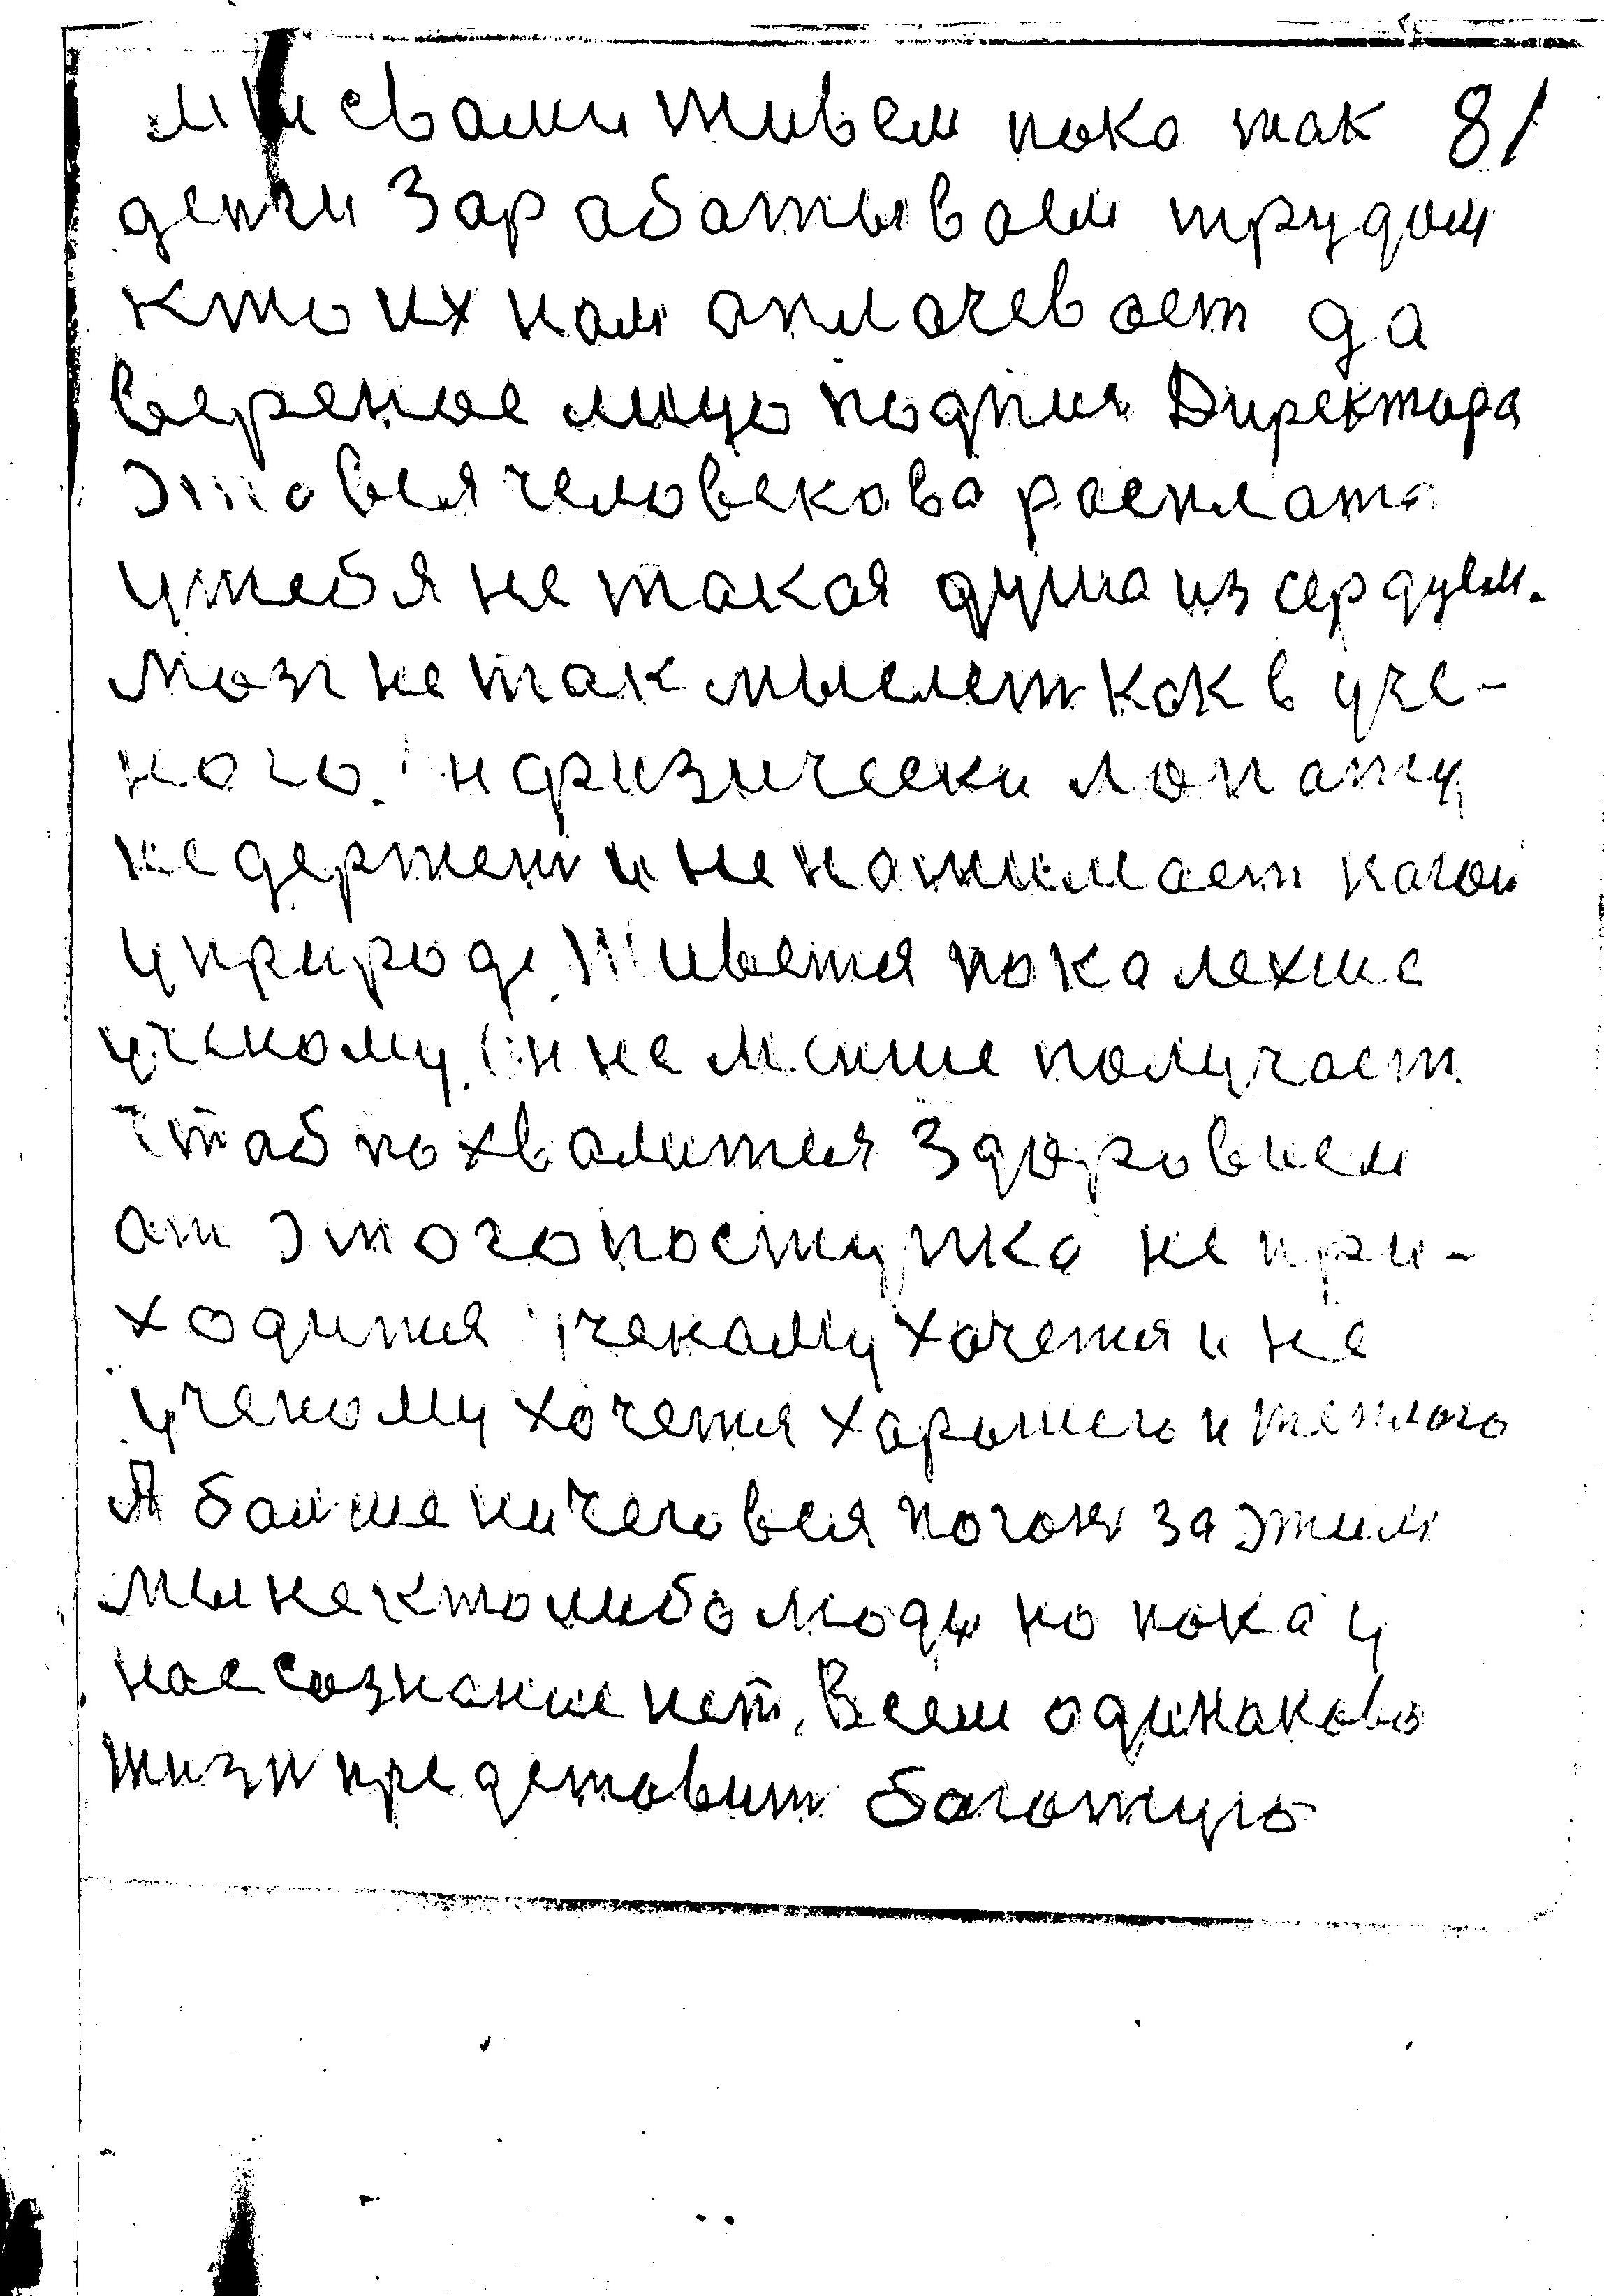 мы свами живем пока так 81
денги Зарабатываем трудом
кто их нам аплачевает да
вереное лицо подпися Директара
Это вся человекова расплата
утебя не такая душа из сердцем.
Мозг не так мыслет как в уче-
ного. Он физически лопату
не держет и не нажимает нагой
уприроде. Живется пока лехше
ученому. Он не менше получает
Чтоб похвалится Здоровием
ат этого поступка не при-
ходится ученаму хочется и не
ученому хочется харошего и теплого
А болше ничего вся погоня за этим
мы не ктолибо люди но пока у
нас сознание нет. Всем одинаково
жизн представит богатую